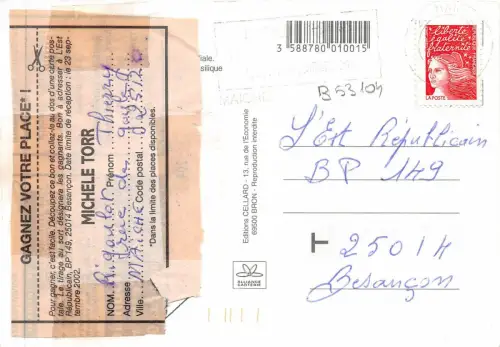 GAGNEZ VOTRE PLACE* !
Pour gagner, c'est facile. Découpez ce bon et collez-le au dos d'une carte pos-
tale. Le tirage au sort désignera les gagnants. Bon à adresser à L'Est
Républicain, BP 149, 25014 Besançon. Date limite de réception : le 23 sep-
tembre 2002.
MICHÈLE TORR
NOM Rigoulot Prénom Thierry
Adresse
Ville MAICHE Code postal 25120
*Dans la limite des places disponibles.
3 588780 010015
MAICHE
B 53104
Editions CELLARD - 13, rue de l'Economie
69500 BRON - Reproduction interdite
liberté
égalité
fraternité
LA POSTE
L'Est Républicain
BP 149
T 25014
Besançon